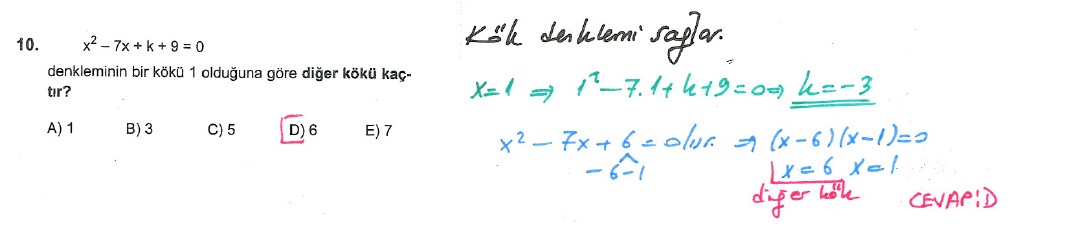 10. x² – 7x + k + 9 = 0
denkleminin bir kökü 1 olduğuna göre diğer kökü kaç-
tır?
A) 1 B) 3 C) 5 D) 6 E) 7
Kök denklemi sağlar.
x=1 ⇒ 1² – 7.1 + k + 9 = 0 ⇒ k = –3
x² – 7x + 6 = olur. ⇒ (x–6)(x–1)=0
–6 –1
x = 6 x = 1
diğer kök
CEVAP:D